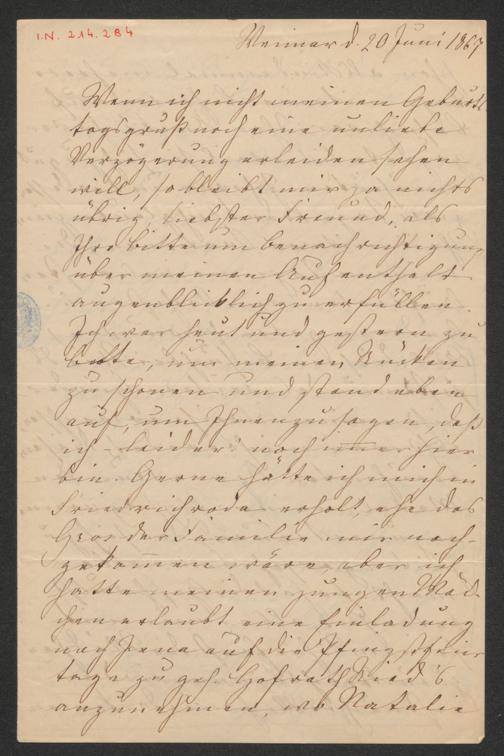 I.N. 214.284
Weimar d. 20 Juni 1867
Wenn ich nicht meinen Geburts
tagsgruß noch eine unliebe
Verzögerung erleiden sehen
will, so bleibt mir ja nichts
übrig, liebster Freund, als
Ihre Bitte um Benachrichtigung
über meinen Aufenthalt
augenblicklich zu erfüllen.
Ich war heut und gestern zu
Bette, um meinen Rücken
zu schonen und stand eben
auf, um Ihnen zu sagen, daß
ich leider noch immer hier
bin. Gerne hätte ich mich in
Friedrichroda erholt, ehe das
Gros der Familie mir nach-
gekommen wäre, aber ich
hatte meinen jungen Mäd-
chen erlaubt eine Einladung
nach Jena auf die Pfingstfeier
tage zu geh. Hofrath Ried's
anzunehmen, wo Natalie